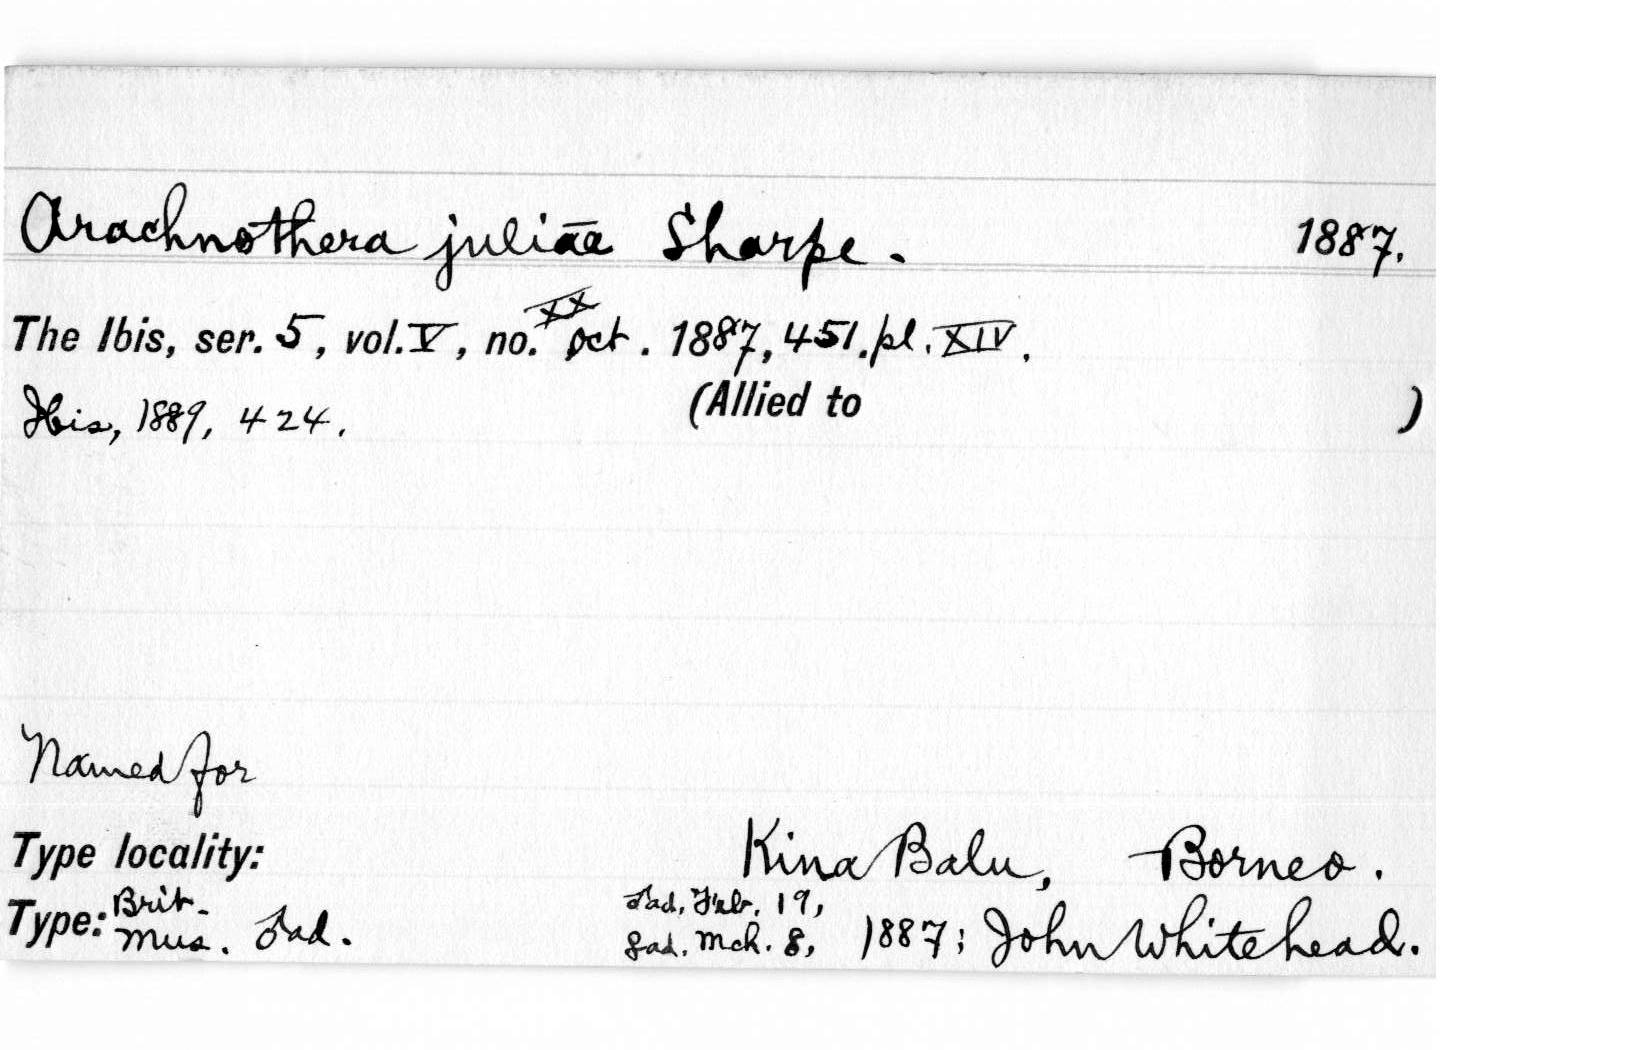 Arachnothera juliae Sharpe. 1887.
The Ibis, ser. 5, vol. V, no. XX Oct. 1887, 451. pl. XIV.
Ibis, 1889, 424. (Allied to )
Named for
Type locality: Kina Balu, Borneo.
Type: Brit. Mus. ♂ad. ♂ad. Feb. 19, ♀ad. Mch. 8, 1887; John Whitehead.